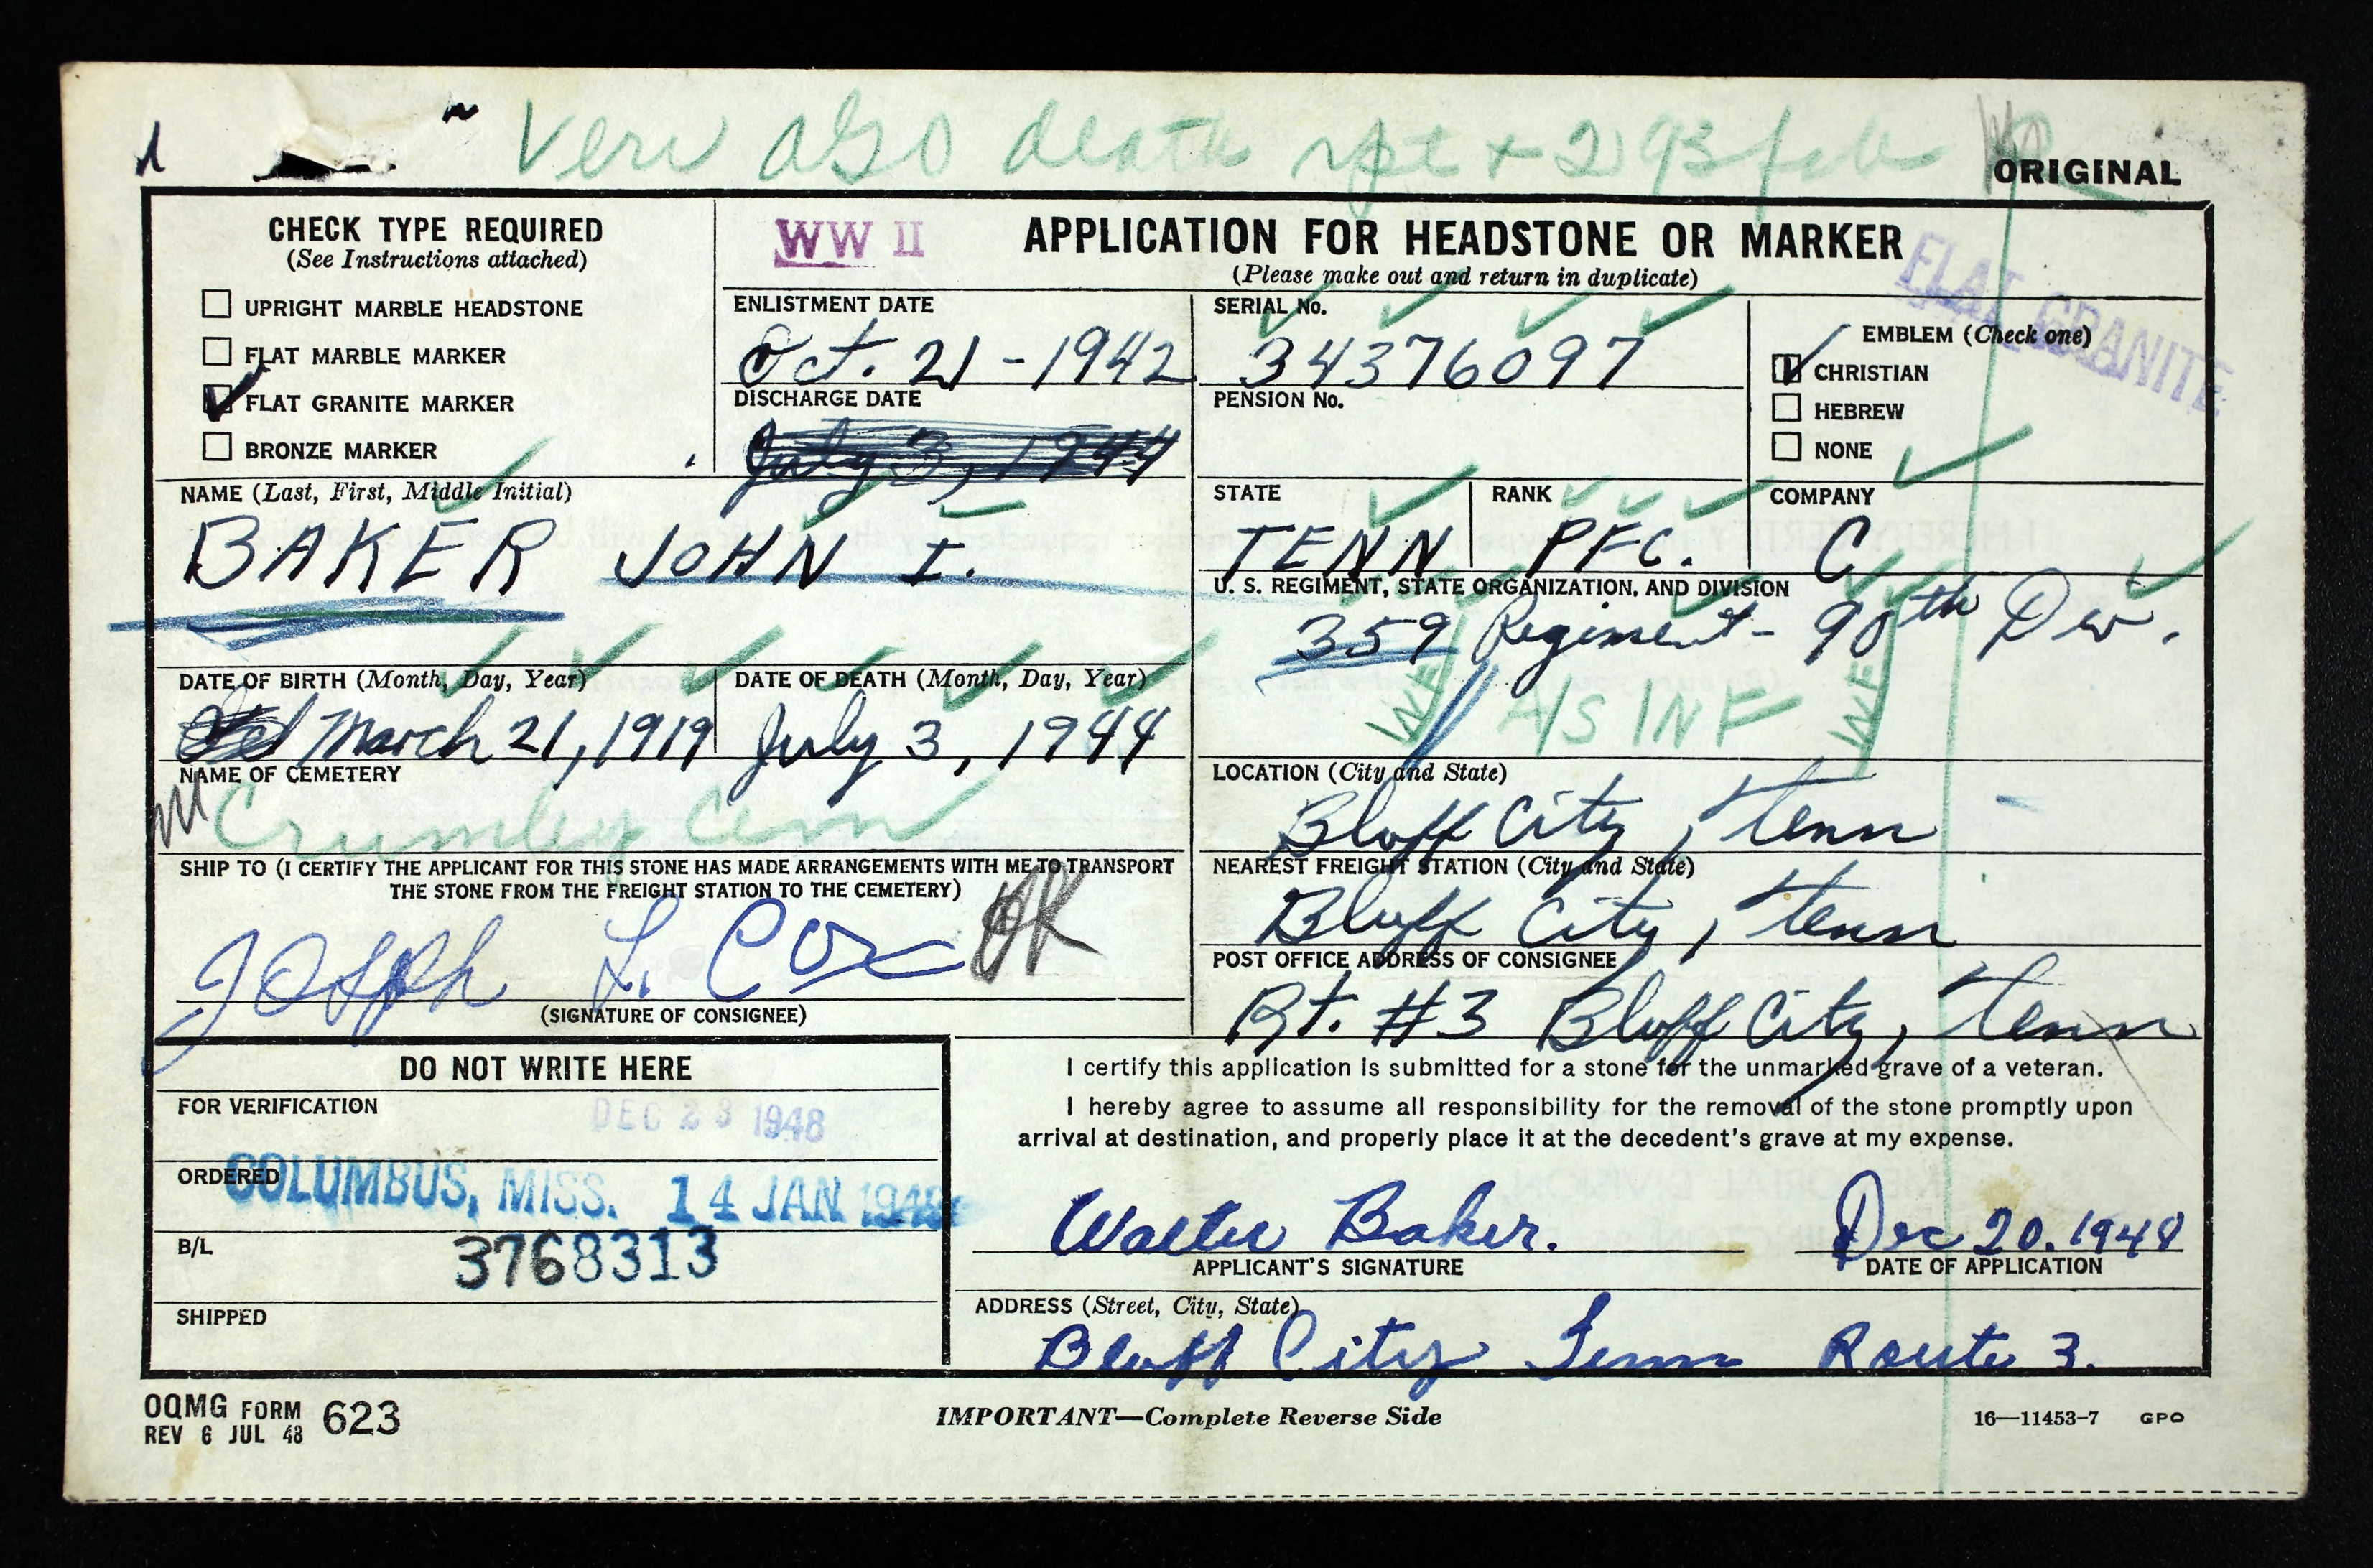 Veri AGO death rpt + 293 file
ORIGINAL
CHECK TYPE REQUIRED
(See Instructions attached)
UPRIGHT MARBLE HEADSTONE
FLAT MARBLE MARKER
FLAT GRANITE MARKER
BRONZE MARKER
WW II
APPLICATION FOR HEADSTONE OR MARKER
(Please make out and return in duplicate)
FLAT GRANITE
ENLISTMENT DATE
Oct. 21-1942
DISCHARGE DATE
July 3, 1944
SERIAL No.
34376097
PENSION No.
EMBLEM (Check one)
CHRISTIAN
HEBREW
NONE
NAME (Last, First, Middle Initial)
BAKER JOHN I.
STATE
TENN
RANK
PFC.
COMPANY
C
U. S. REGIMENT, STATE ORGANIZATION, AND DIVISION
359 Regiment - 90th Div.
INF
DATE OF BIRTH (Month, Day, Year)
March 21, 1919
DATE OF DEATH (Month, Day, Year)
July 3, 1944
NAME OF CEMETERY
Crumley Cem
LOCATION (City and State)
Bluff City, Tenn
SHIP TO (I CERTIFY THE APPLICANT FOR THIS STONE HAS MADE ARRANGEMENTS WITH ME TO TRANSPORT
THE STONE FROM THE FREIGHT STATION TO THE CEMETERY)
Joseph L. Cox OK
(SIGNATURE OF CONSIGNEE)
NEAREST FREIGHT STATION (City and State)
Bluff City, Tenn
POST OFFICE ADDRESS OF CONSIGNEE
Rt. #3 Bluff City, Tenn
DO NOT WRITE HERE
FOR VERIFICATION
DEC 23 1948
ORDERED
COLUMBUS, MISS. 14 JAN 1949
B/L
3768313
SHIPPED
I certify this application is submitted for a stone for the unmarked grave of a veteran.
I hereby agree to assume all responsibility for the removal of the stone promptly upon
arrival at destination, and properly place it at the decedent's grave at my expense.
Walter Baker. Dec 20. 1948
APPLICANT'S SIGNATURE
DATE OF APPLICATION
ADDRESS (Street, City, State)
Bluff City Tenn Route 3.
OQMG FORM 623
REV 6 JUL 48
IMPORTANT—Complete Reverse Side
16—11453-7 GPO